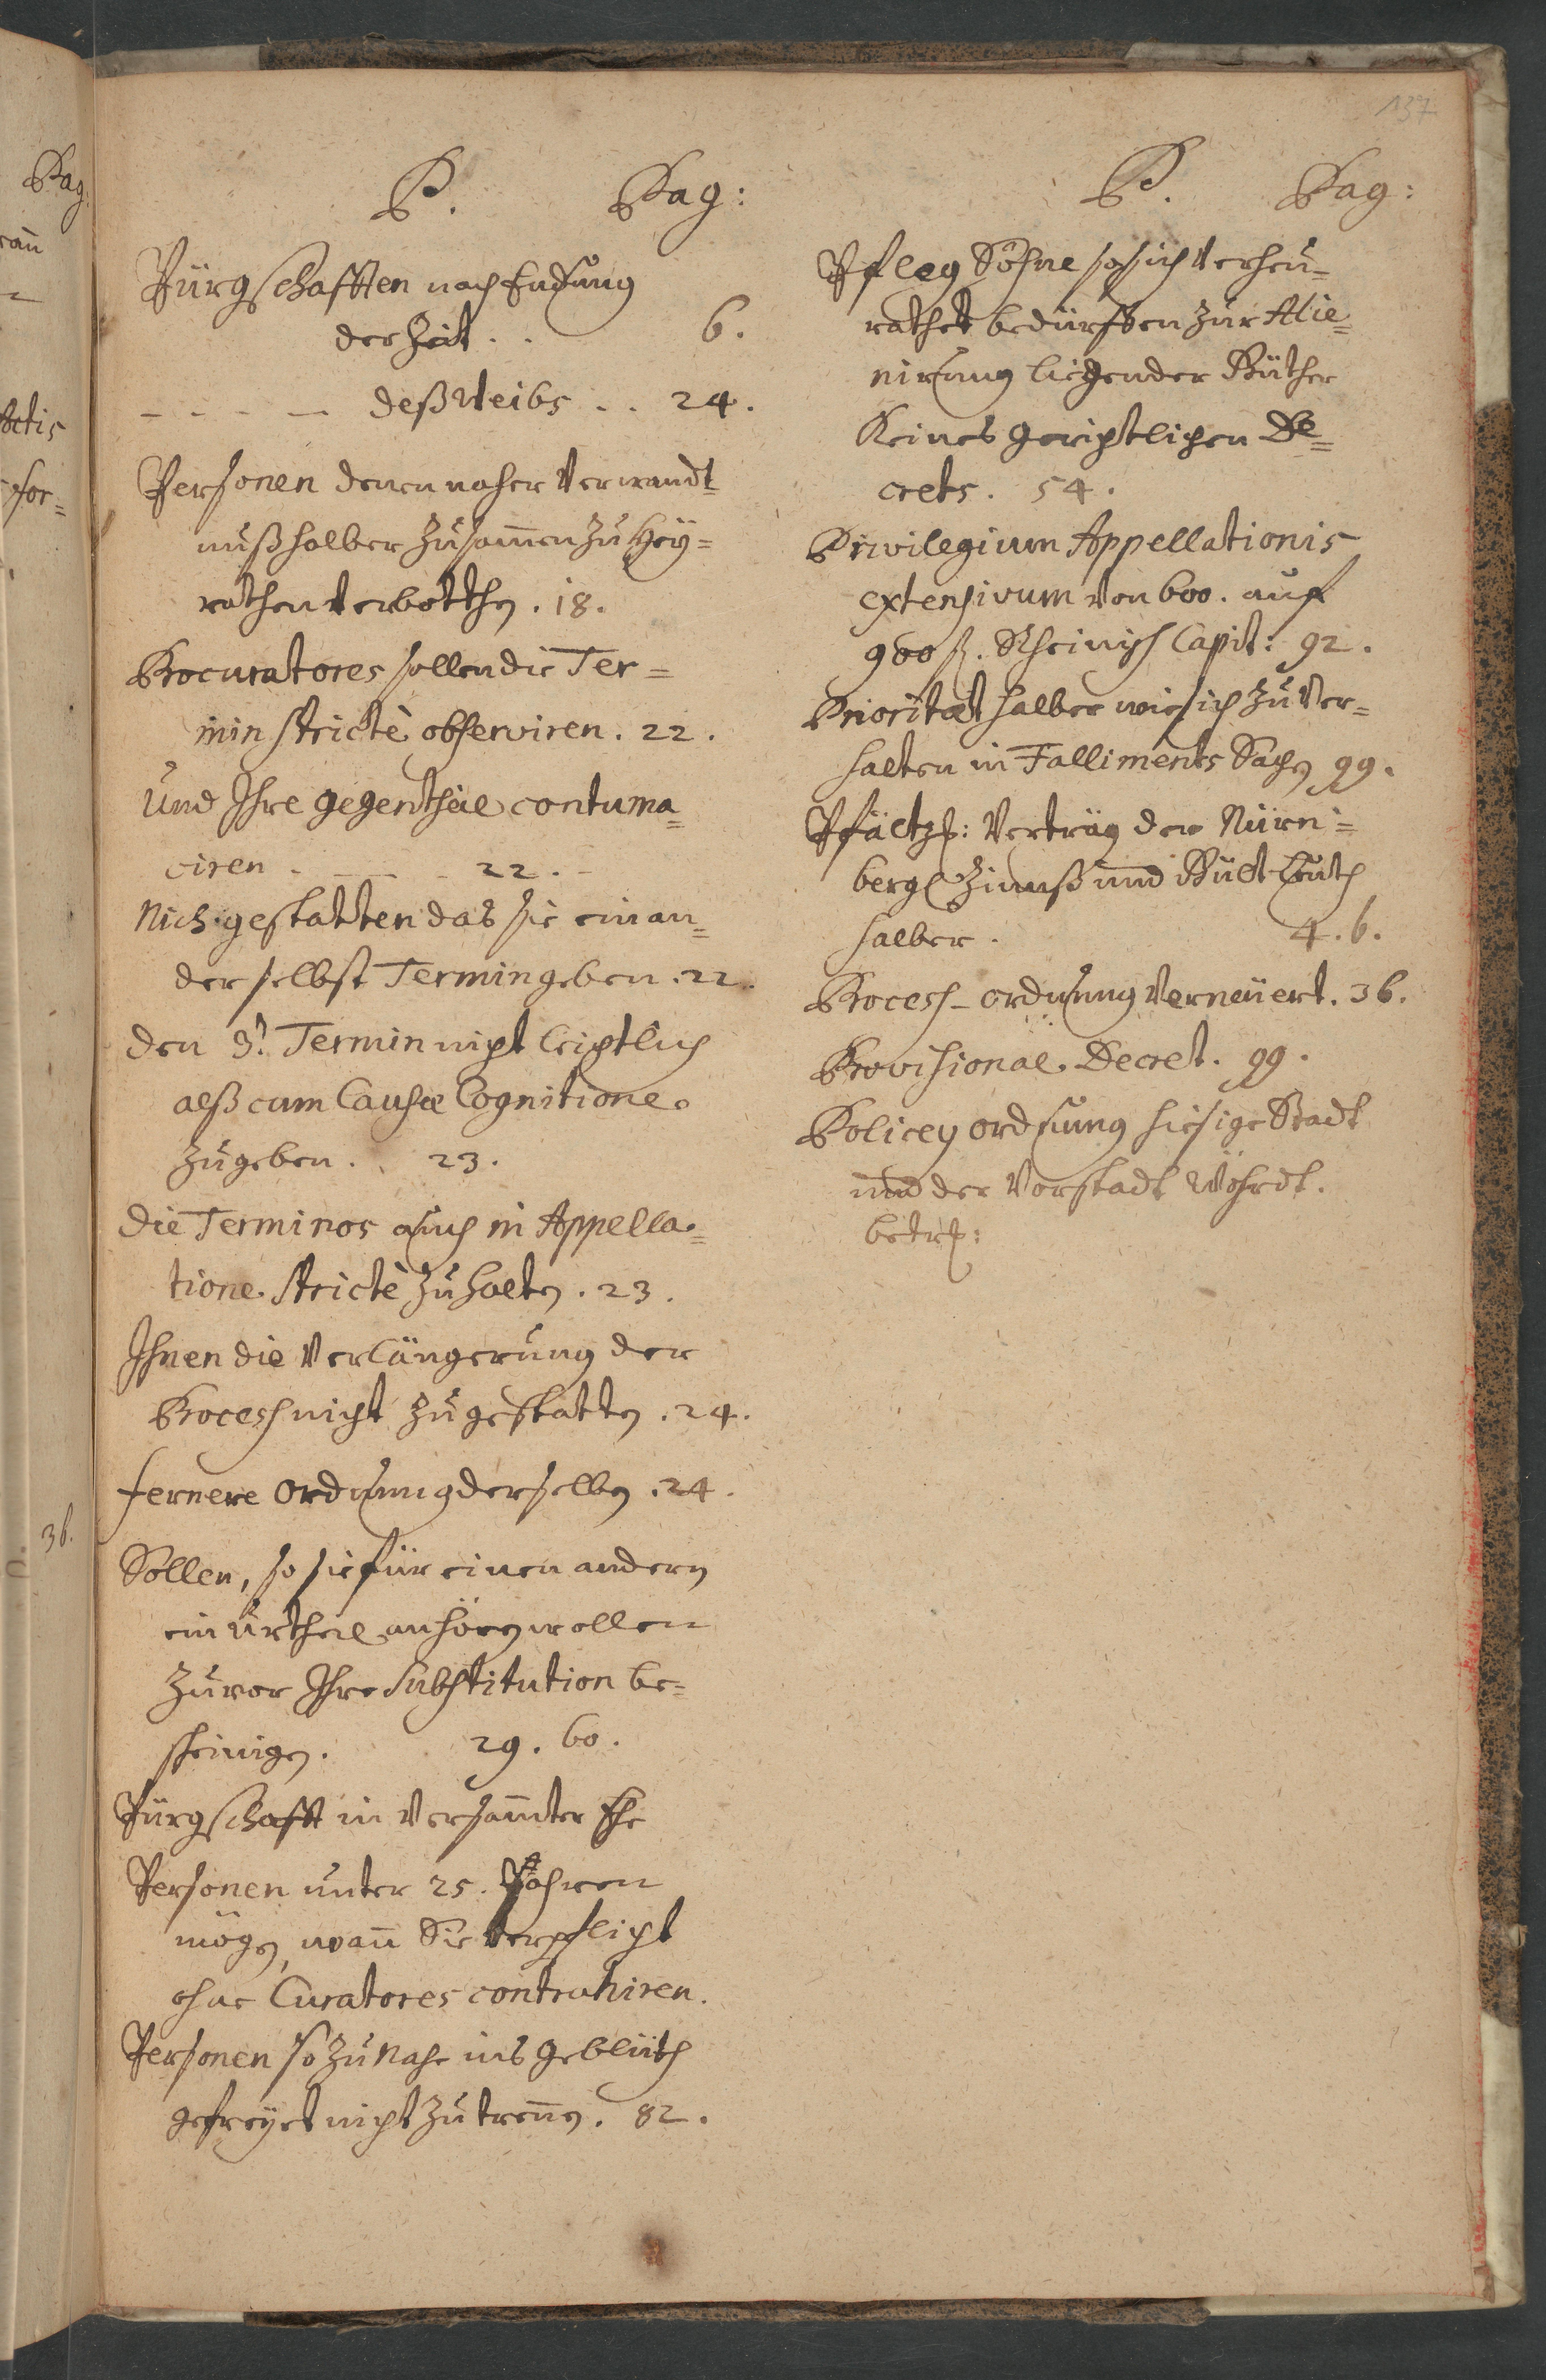 137
P. Pag:
Pürgschafften nach Endung
der Zeit . . 6.
- - - - deß Weibs . . 24.
Personen denen naher Verwandt=
nuß halber zusam̄en zu Hey=
rathen verbotthen. 18.
Procuratores sollen die Ter=
min strictè observiren. 22.
Und Ihre gegentheil contuma=
ciren . - - - 22. -
Nich gestatten das sie einan=
der selbst Termin geben. 22.
den 3.t Termin nicht leichtlich
alß cum Causæ Cognitione
zugeben. . 23.
Die Terminos auch in Appella=
tione strictè zu halten. 23.
Ihnen die Verlängerung der
Process nicht zu gestatten. 24.
fernere Ordnung derselben. 24.
Sollen, so sie für einen andern
ein Urtheil anhören wollen
zuvor Ihre Substitution be=
scheinigen. 29. 60.
Pürgschafft in versam̄ter Ehe
Personen unter 25. Jahren
mögen, wan̄ Sie verpflicht
ohne Curatores contrahiren.
Personen so zu Nahe ins Geblüth
gefreyet nicht zu tren̄en. 82.
P. Pag:
Pfleg Söhne so sich verheu=
rathet bedürffen zur Alie=
nirung liegender Güther
Keines gerichtlichen De=
crets. 54.
Privilegium Appellationis
extensivum von 600. auf
900 fl. Rheinisch Capit: 92.
Prioritæt halber wie sich zu Ver=
halten in Falliments Sachen 99.
Pfältzs: Verträg der Nürn=
bergl Zinnß und Gült Leuth
halber. 4. 6.
Process-Ordnung Verneüert. 36.
Provisional. Decret. 99.
Policey Ordnung hiesige Stadt
und der Vorstadt Wöhrdt.
betrf:
Pag:
36.